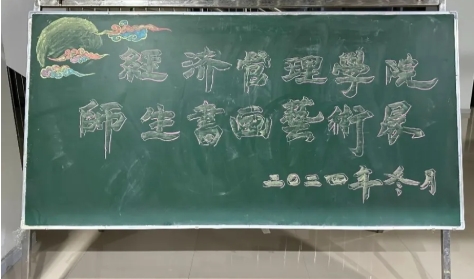 經济管理學院
師生書画藝術展
二〇二四年冬月